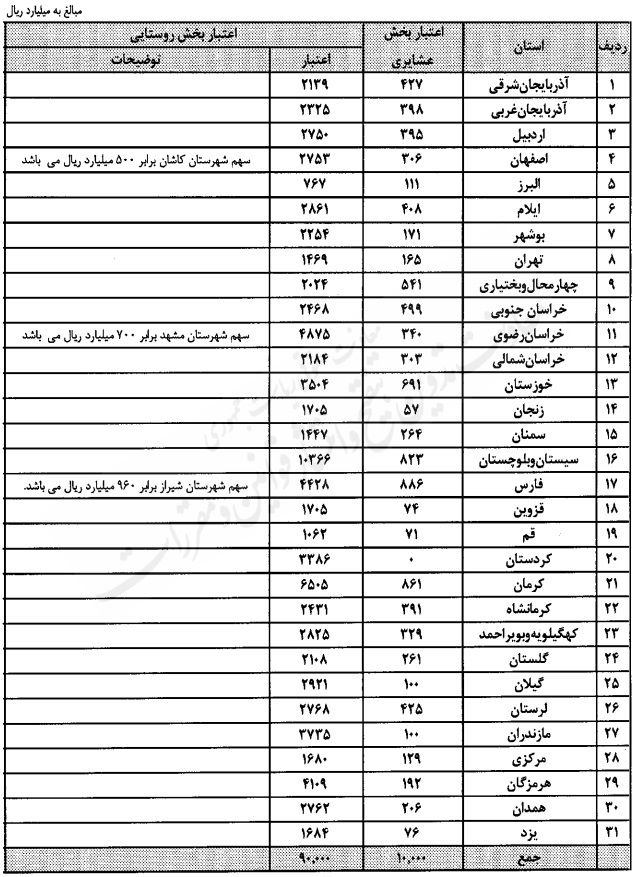 مبالغ به میلیارد ریال
ردیف استان اعتبار بخش عشایری اعتبار بخش روستایی
اعتبار توضیحات
۱ آذربایجان‌شرقی ۴۲۷ ۲۱۳۹
۲ آذربایجان‌غربی ۳۹۸ ۲۳۲۵
۳ اردبیل ۳۹۵ ۲۷۵۰
۴ اصفهان ۳۰۶ ۲۷۵۳ سهم شهرستان کاشان برابر ۵۰۰ میلیارد ریال می باشد
۵ البرز ۱۱۱ ۷۶۷
۶ ایلام ۴۰۸ ۲۸۶۱
۷ بوشهر ۱۷۱ ۲۲۵۴
۸ تهران ۱۶۵ ۱۴۶۹
۹ چهارمحال‌وبختیاری ۵۴۱ ۲۰۲۴
۱۰ خراسان جنوبی ۴۹۹ ۲۴۶۸
۱۱ خراسان‌رضوی ۳۴۰ ۴۸۷۵ سهم شهرستان مشهد برابر ۷۰۰ میلیارد ریال می باشد
۱۲ خراسان‌شمالی ۳۰۳ ۲۱۸۴
۱۳ خوزستان ۶۹۱ ۳۵۰۴
۱۴ زنجان ۵۷ ۱۷۰۵
۱۵ سمنان ۲۶۴ ۱۴۴۷
۱۶ سیستان‌وبلوچستان ۸۲۳ ۱۰۳۶۶
۱۷ فارس ۸۸۶ ۴۴۲۸ سهم شهرستان شیراز برابر ۹۶۰ میلیارد ریال می باشد.
۱۸ قزوین ۷۴ ۱۷۰۵
۱۹ قم ۷۱ ۱۰۶۲
۲۰ کردستان ۰ ۳۳۸۶
۲۱ کرمان ۸۶۱ ۶۵۰۵
۲۲ کرمانشاه ۳۹۱ ۲۴۳۱
۲۳ کهگیلویه‌وبویراحمد ۳۲۹ ۲۸۲۵
۲۴ گلستان ۲۶۱ ۲۱۰۸
۲۵ گیلان ۱۰۰ ۲۹۲۱
۲۶ لرستان ۴۲۵ ۲۷۶۸
۲۷ مازندران ۱۰۰ ۳۷۳۵
۲۸ مرکزی ۱۲۹ ۱۶۸۰
۲۹ هرمزگان ۱۹۲ ۴۱۰۹
۳۰ همدان ۲۰۶ ۲۷۶۲
۳۱ یزد ۷۶ ۱۶۸۴
جمع ۱۰,۰۰۰ ۹۰,۰۰۰